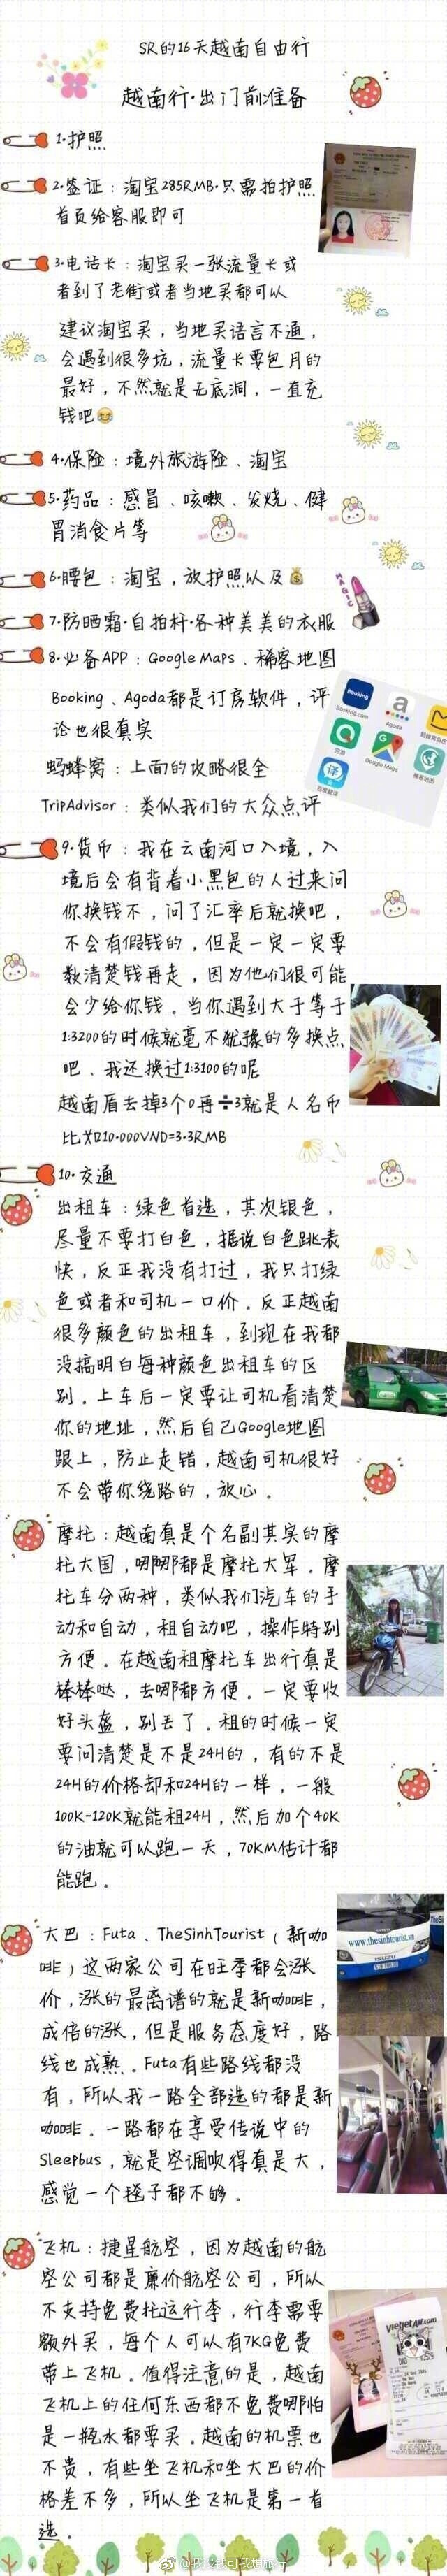 SR的16天越南自由行
越南行·出门前准备
1·护照
2·签证：淘宝285RMB·只需拍护照
首页给客服即可
3·电话卡：淘宝买一张流量卡或
者到了老街或者当地买都可以
建议淘宝买，当地买语言不通，
会遇到很多坑，流量卡要包月的
最好，不然就是无底洞，一直充
钱吧😂
4·保险：境外旅游险、淘宝
5·药品：感冒、咳嗽、发烧、健
胃消食片等
6·腰包：淘宝，放护照以及💰
MAGIC
7·防晒霜·自拍杆·各种美美的衣服
8·必备APP：Google Maps、稀客地图
Booking、Agoda都是订房软件，评
论也很真实
Booking
Booking.com
a
Agoda
Google Maps
译
百度翻译
蚂蜂窝：上面的攻略很全
TripAdvisor：类似我们的大众点评
9·货币：我在云南河口入境，入
境后会有背着小黑包的人过来问
你换钱不，问了汇率后就换吧，
不会有假钱的，但是一定一定要
数清楚钱再走，因为他们很可能
会少给你钱。当你遇到大于等于
1:3200的时候就毫不犹豫的多换点
吧、我还换过1:3100的呢
越南盾去掉3个0再➗3就是人名币
比如10·000VND=3·3RMB
10·交通
出租车：绿色首选，其次银色，
尽量不要打白色，据说白色跳表
快，反正我没有打过，我只打绿
色或者和司机一口价。反正越南
很多颜色的出租车，到现在我都
没搞明白每种颜色出租车的区
别。上车后一定要让司机看清楚
你的地址，然后自己Google地图
跟上，防止走错，越南司机很好
不会带你绕路的，放心。
摩托：越南真是个名副其实的摩
托大国，哪哪都是摩托大军。摩
托车分两种，类似我们汽车的手
动和自动，租自动吧，操作特别
方便。在越南租摩托车出行真是
棒棒哒，去哪都方便。一定要收
好头盔，别丢了。租的时候一定
要问清楚是不是24H的，有的不是
24H的价格却和24H的一样，一般
100K-120K就能租24H，然后加个40K
的油就可以跑一天，70KM估计都
能跑。
大巴：Futa、TheSinhTourist（新咖
啡）这两家公司在旺季都会涨
价，涨的最离谱的就是新咖啡，
成倍的涨，但是服务态度好，路
线也成熟。Futa有些路线都没
有，所以我一路全部选的都是新
咖啡。一路都在享受传说中的
Sleepbus，就是空调呗得真是大，
感觉一个毯子都不够。
www.thesinhtourist.vn
飞机：捷星航空，因为越南的航
空公司都是廉价航空公司，所以
不支持免费托运行李，行李需要
额外买，每个人可以有7KG免费
带上飞机。值得注意的是，越南
飞机上的任何东西都不免费哪怕
是一瓶水都要买。越南的机票也
不贵，有些坐飞机和坐大巴的价
格差不多，所以坐飞机是第一首
选。
VietjetAir.com